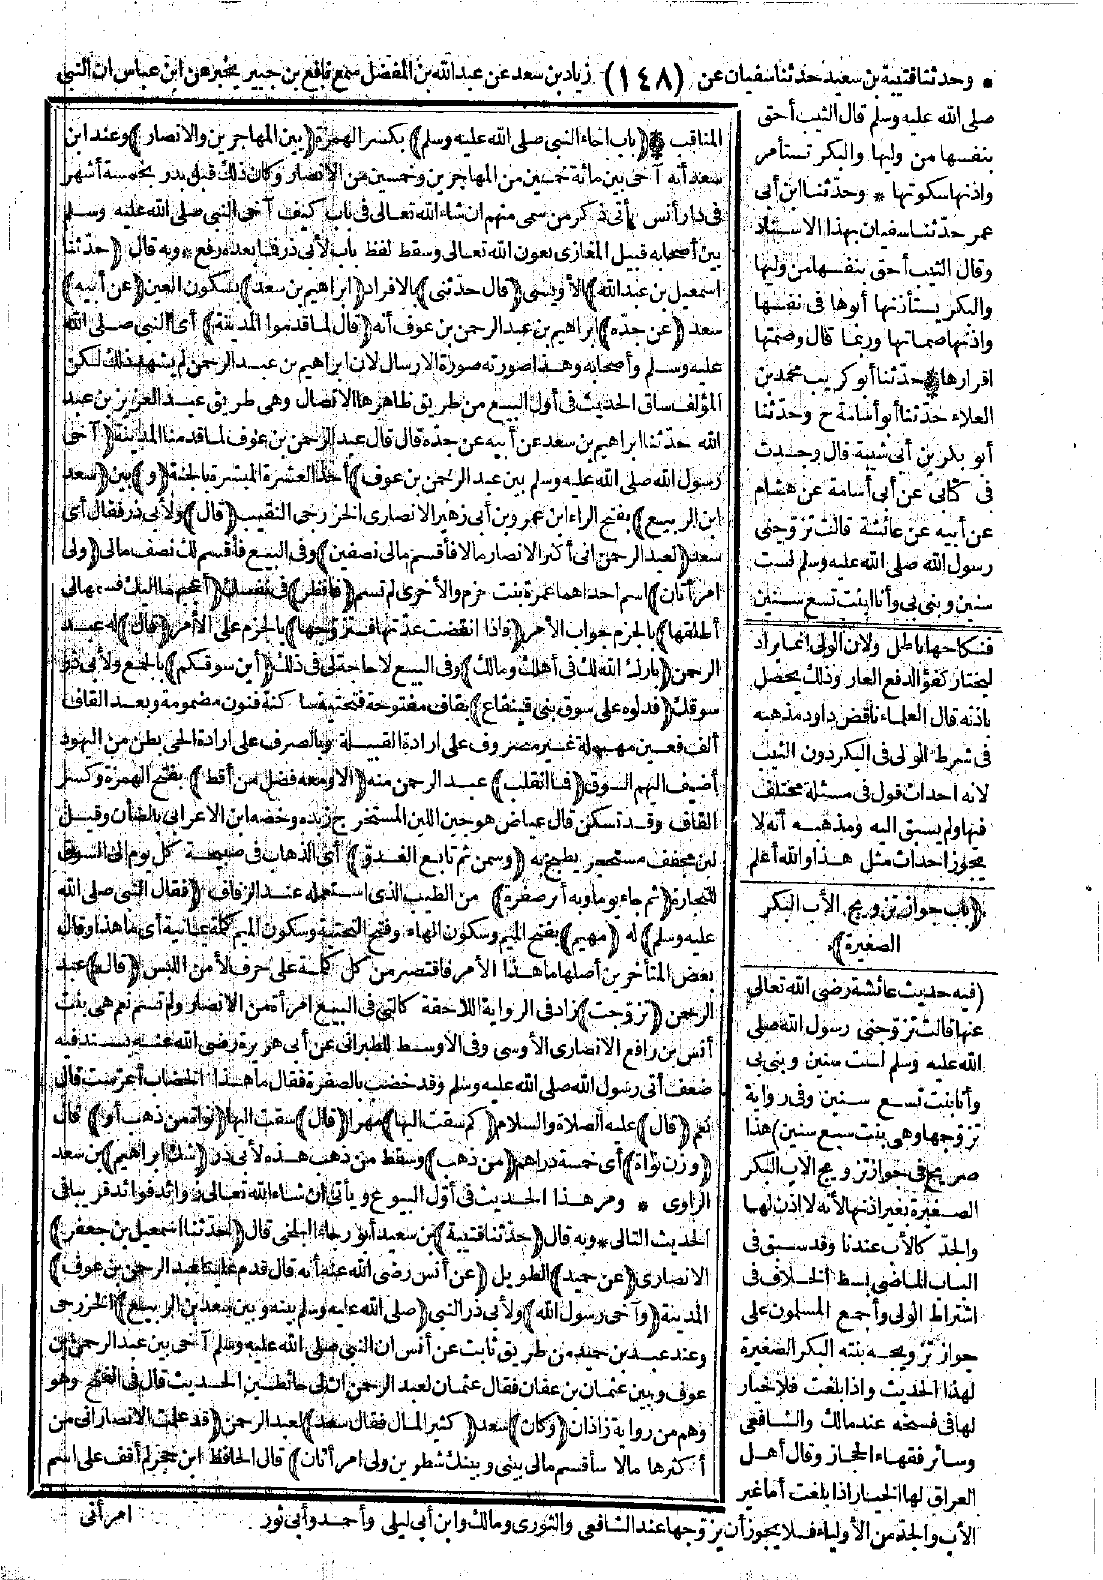 * وحدثنا قتيبة بن سعيد حدثنا سفيان عن (١٤٨) زياد بن سعد عن عبد الله بن المفضل سمع نافع بن جبير يخبر عن ابن عباس ان النبي
صلى الله عليه وسلم قال الثيب أحق
بنفسها من وليها والبكر تستأمر
واذنها سكوتها * وحدثنا ابن أبي
عمر حدثنا سفيان بهذا الاسناد
وقال الثيب أحق بنفسها من وليها
والبكر يستأذنها أبوها فى نفسها
واذنها صماتها وربما قال وصمتها
اقرارها * حدثنا أبو كريب محمد بن
العلاء حدثنا أبو أسامة ح وحدثنا
أبو بكر بن أبى شيبة قال وجدت
فى كتابى عن أبى أسامة عن هشام
عن أبيه عن عائشة قالت تزوجنى
رسول الله صلى الله عليه وسلم لست
سنين وبنى بى وأنا ابنت تسع سنين
فنكاحها باطل ولان الولى انما يراد
ليختار كفؤا لدفع العار وذلك يحصل
باذنه قال العلماء ناقض داود مذهبه
فى شرط الولى فى البكر دون الثيب
لانه احداث قول فى مسئلة مختلف
فيها ولم يسبق اليه ومذهبه أنه لا
يجوز احداث مثل هذا والله أعلم
(باب جواز تزويج الأب البكر
الصغيرة)
(فيه حديث عائشة رضى الله تعالى
عنها قالت تزوجنى رسول الله صلى
الله عليه وسلم لست سنين وبنى بى
وأنا بنت تسع سنين وفى رواية
تزوجها وهى بنت سبع سنين) هذا
صريح فى جواز تزويج الأب البكر
الصغيرة بغير اذنها لأنه لا اذن لها
والجد كالأب عندنا وقد سبق فى
الباب الماضى بسط الخلاف فى
اشتراط الولى وأجمع المسلمون على
جواز تزويجه بنته البكر الصغيرة
لهذا الحديث واذا بلغت فلا خيار
لها فى فسخه عند مالك والشافعى
وسائر فقهاء الحجاز وقال أهل
العراق لها الخيار اذا بلغت أما غير
الأب والجد من الأولياء فلا يجوز أن يزوجها عند الشافعى والثورى ومالك وابن أبى ليلى وأحمد وأبى ثور
المناقب * (باب اخاء النبى صلى الله عليه وسلم) بكسر الهمزة (بين المهاجرين والانصار) وعند ابن
سعد أنه آخى بين مائة خمسين من المهاجرين وخمسين من الانصار وكان ذلك قبل بدر بخمسة أشهر
فى دار أنس يأتى ذكر من سمى منهم ان شاء الله تعالى فى باب كيف آخى النبى صلى الله عليه وسلم
بين أصحابه قبيل المغازى بعون الله تعالى وسقط لفظ باب لأبى ذر فما بعده رفع * وبه قال (حدثنا
اسمعيل بن عبد الله) الأويسى (قال حدثنى) بالافراد (ابراهيم بن سعد) بسكون العين (عن أبيه)
سعد (عن جده) ابراهيم بن عبد الرحمن بن عوف أنه (قال لما قدموا المدينة) أى النبى صلى الله
عليه وسلم وأصحابه وهذا صورته صورة الارسال لان ابراهيم بن عبد الرحمن لم يشهد ذلك لكن
المؤلف ساق الحديث فى أول البيع من طريق ظاهرها الاتصال وهى طريق عبد العزيز بن عبد
الله حدثنا ابراهيم بن سعد عن أبيه عن جده قال قال عبد الرحمن بن عوف لما قدمنا المدينة (آخى
رسول الله صلى الله عليه وسلم بين عبد الرحمن بن عوف) أحد العشرة المبشرة بالجنة (و) بين (سعد
ابن الربيع) بفتح الراء ابن عمرو بن أبى زهير الانصارى الخزرجى النقيب (قال) ولأبى ذر فقال أى
سعد (لعبد الرحمن انى أكثر الانصار مالا فأقسم مالى نصفين) وفى البيع فأقسم لك نصف مالى (ولى
امرأتان) اسم احداهما عمرة بنت حزم والأخرى لم تسم (فانظر) فى نفسك (أعجبهما اليك فسمها لى
أطلقها) بالجزم جواب الأمر (فاذا انقضت عدتها فتزوجها) بالجزم على الأمر (قال) له عبد
الرحمن (بارك الله لك فى أهلك ومالك) وفى البيع لا حاجة لى فى ذلك (أين سوقكم) بالجمع ولأبى ذر
سوقك (فدلوه على سوق بنى قينقاع) بقاف مفتوحة فتحتية ساكنة فنون مضمومة وبعد القاف
ألف فعين مهملة غير مصروف على ارادة القبيلة وبالصرف على ارادة الحى بطن من اليهود
أضيف اليهم السوق (فما انقلب) عبد الرحمن منه (الا ومعه فضل من أقط) بفتح الهمزة وكسر
القاف وقد تسكن قال عياض هو جبن اللبن المستخرج زبده وخصه ابن الاعرابى بالضأن وقيل
لبن مجفف مستحجر يطبخ به (وسمن ثم تابع الغدو) أى الذهاب فى صبيحة كل يوم الى السوق
للتجارة (ثم جاء يوما وبه أثر صفرة) من الطيب الذى استعمله عند الزفاف (فقال النبى صلى الله
عليه وسلم) له (مهيم) بفتح الميم وسكون الهاء وفتح التحتية وسكون الميم كلمة يمانية أى ما هذا وقال
بعض المتأخرين أصلها ما هذا الأمر فاقتصر من كل كلمة على حرف لأمن اللبس (قال) عبد
الرحمن (تزوجت) زاد فى الرواية اللاحقة كالتى فى البيع امرأة من الانصار ولم تسم نعم هى بنت
أنس بن رافع الانصارى الأوسى وفى الاوسط للطبرانى عن أبى هريرة رضى الله عنه بسند فيه
ضعف أتى رسول الله صلى الله عليه وسلم وقد خضب بالصفرة فقال ما هذا الخضاب أعرست قال
نعم (قال) عليه الصلاة والسلام (كم سقت اليها) مهرا (قال) سقت اليها (نواة من ذهب أو) قال
(وزن نواة) أى خمسة دراهم (من ذهب) وسقط من ذهب هذه لأبى ذر (شك ابراهيم) بن سعد
الراوى * ومر هذا الحديث فى أول البيوع ويأتى ان شاء الله تعالى زوائد فوائد قريبا فى
الحديث التالى * وبه قال (حدثنا قتيبة) بن سعيد أبو رجاء البلخى قال (حدثنا اسمعيل بن جعفر)
الانصارى (عن حميد) الطويل (عن أنس رضى الله عنه أنه قال قدم علينا عبد الرحمن بن عوف)
المدينة (وآخى رسول الله) ولأبى ذر النبى (صلى الله عليه وسلم بينه وبين سعد بن الربيع) الخزرجى
وعند عبد بن حميد من طريق ثابت عن أنس ان النبى صلى الله عليه وسلم آخى بين عبد الرحمن بن
عوف وبين عثمان بن عفان فقال عثمان لعبد الرحمن ان لى حائطين الحديث قال فى الفتح وهو
وهم من رواية زاذان (وكان) سعد (كثير المال فقال سعد) لعبد الرحمن (قد علمت الانصار انى من
أكثرها مالا سأقسم مالى بينى وبينك شطرين ولى امرأتان) قال الحافظ ابن حجر لم أقف على اسم
امرأتى